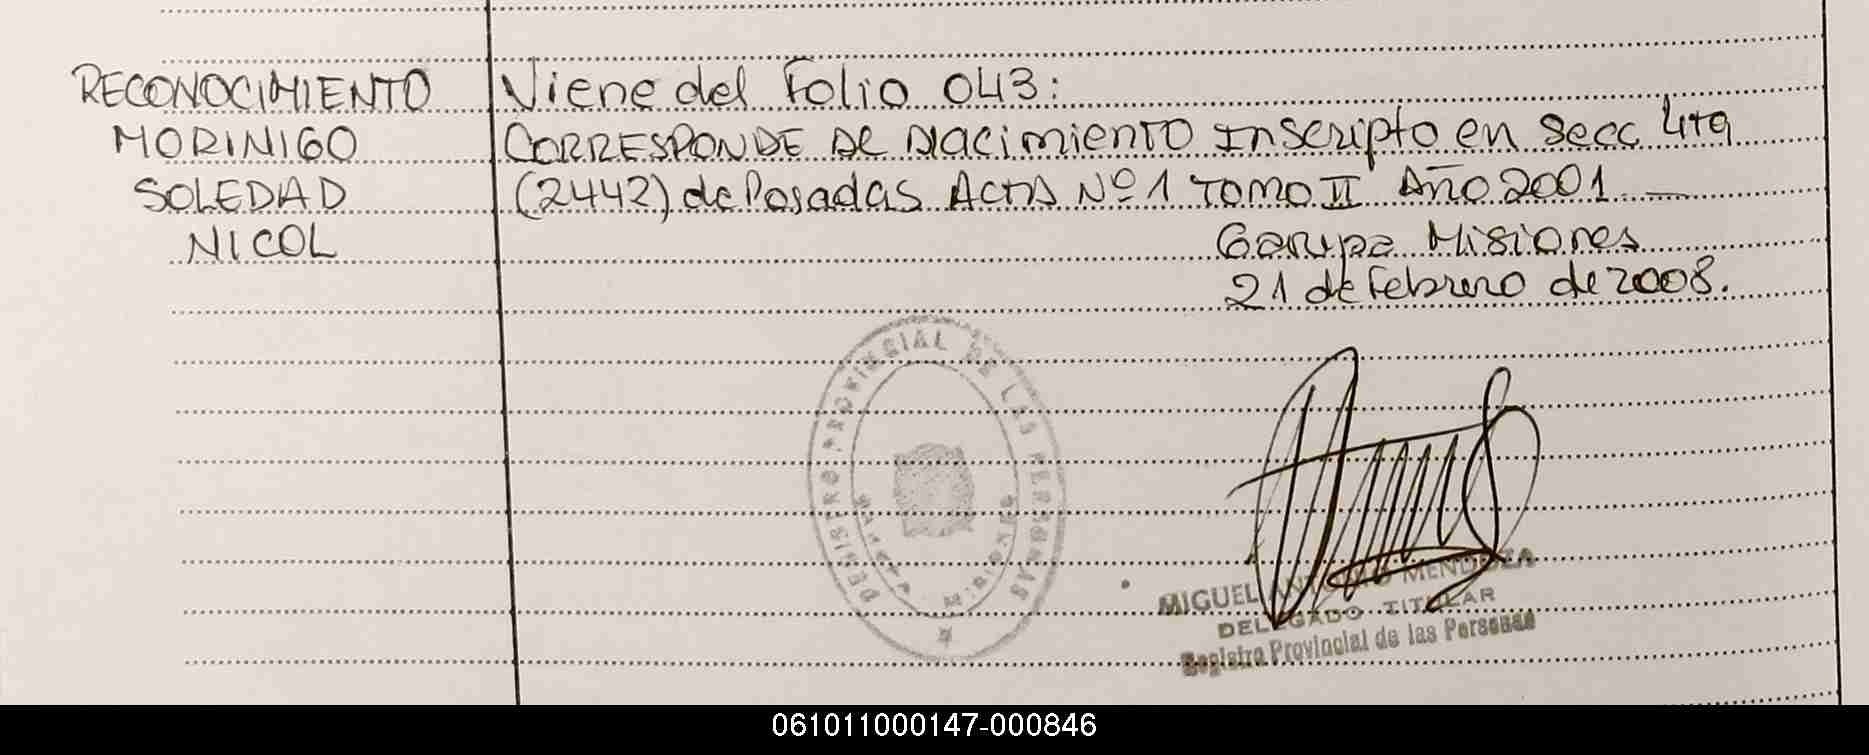 RECONOCIMIENTO
MORINIGO
SOLEDAD
NICOL
Viene del Folio 043:
CORRESPONDE de Nacimiento Inscripto en secc 4ta
(2442) de Posadas Acta Nº 1 TOMO II Año 2001
Garupa Misiones
21 de Febrero de 2008.
REGISTRO PROVINCIAL DE LAS PERSONAS
GARUPA MISIONES
MIGUEL ANTONIO MENDOZA
DELEGADO TITULAR
Registro Provincial de las Personas
061011000147-000846